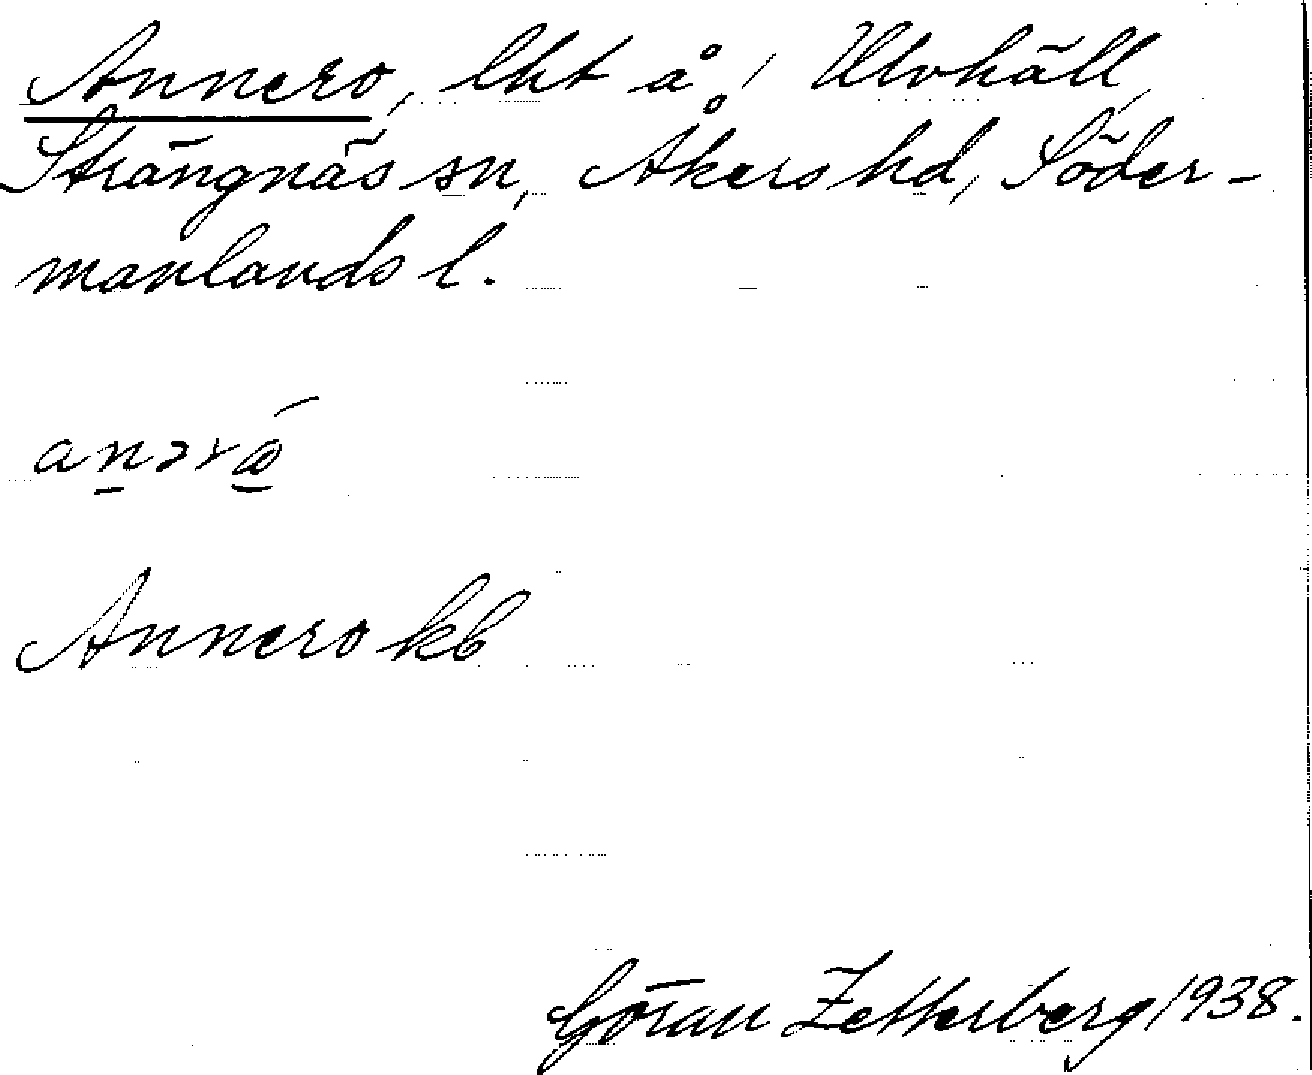 Annero, lht å, Ulvhäll,
Strängnäs sn, Åkers hd, Söder-
manlands l.
Annero kb
Göran Zetterberg 1938.